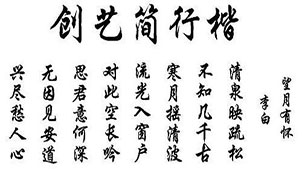 创艺简行楷
望月有怀
李白
清泉映疏松
不知几千古
寒月摇清波
流光入窗户
对此空长吟
思君意何深
无因见安道
兴尽愁人心